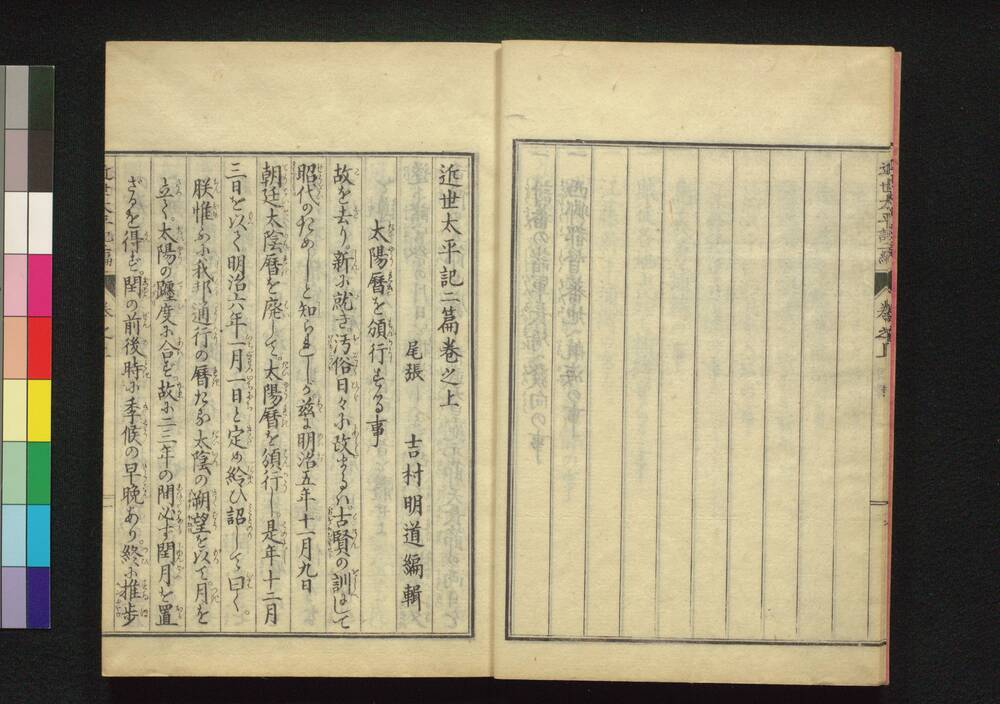 近世太平記二篇巻之上
尾張 吉村明道編輯
太陽暦を頒行する事
故を去り新に就き汚俗日々に改まるハ古賢の訓にして
昭代のためしと知られしが茲に明治五年十一月九日
朝廷太陰暦を廃して太陽暦を頒行し是年十二月
三日を以て明治六年一月一日と定め給ひ詔して曰く
朕惟ふに我邦通行の暦たる太陰の朔望を以て月を
立て太陽の躔度に合す故に二三年の間必ず閏月を置
ざるを得ず閏の前後時に季候の早晩あり終に推歩